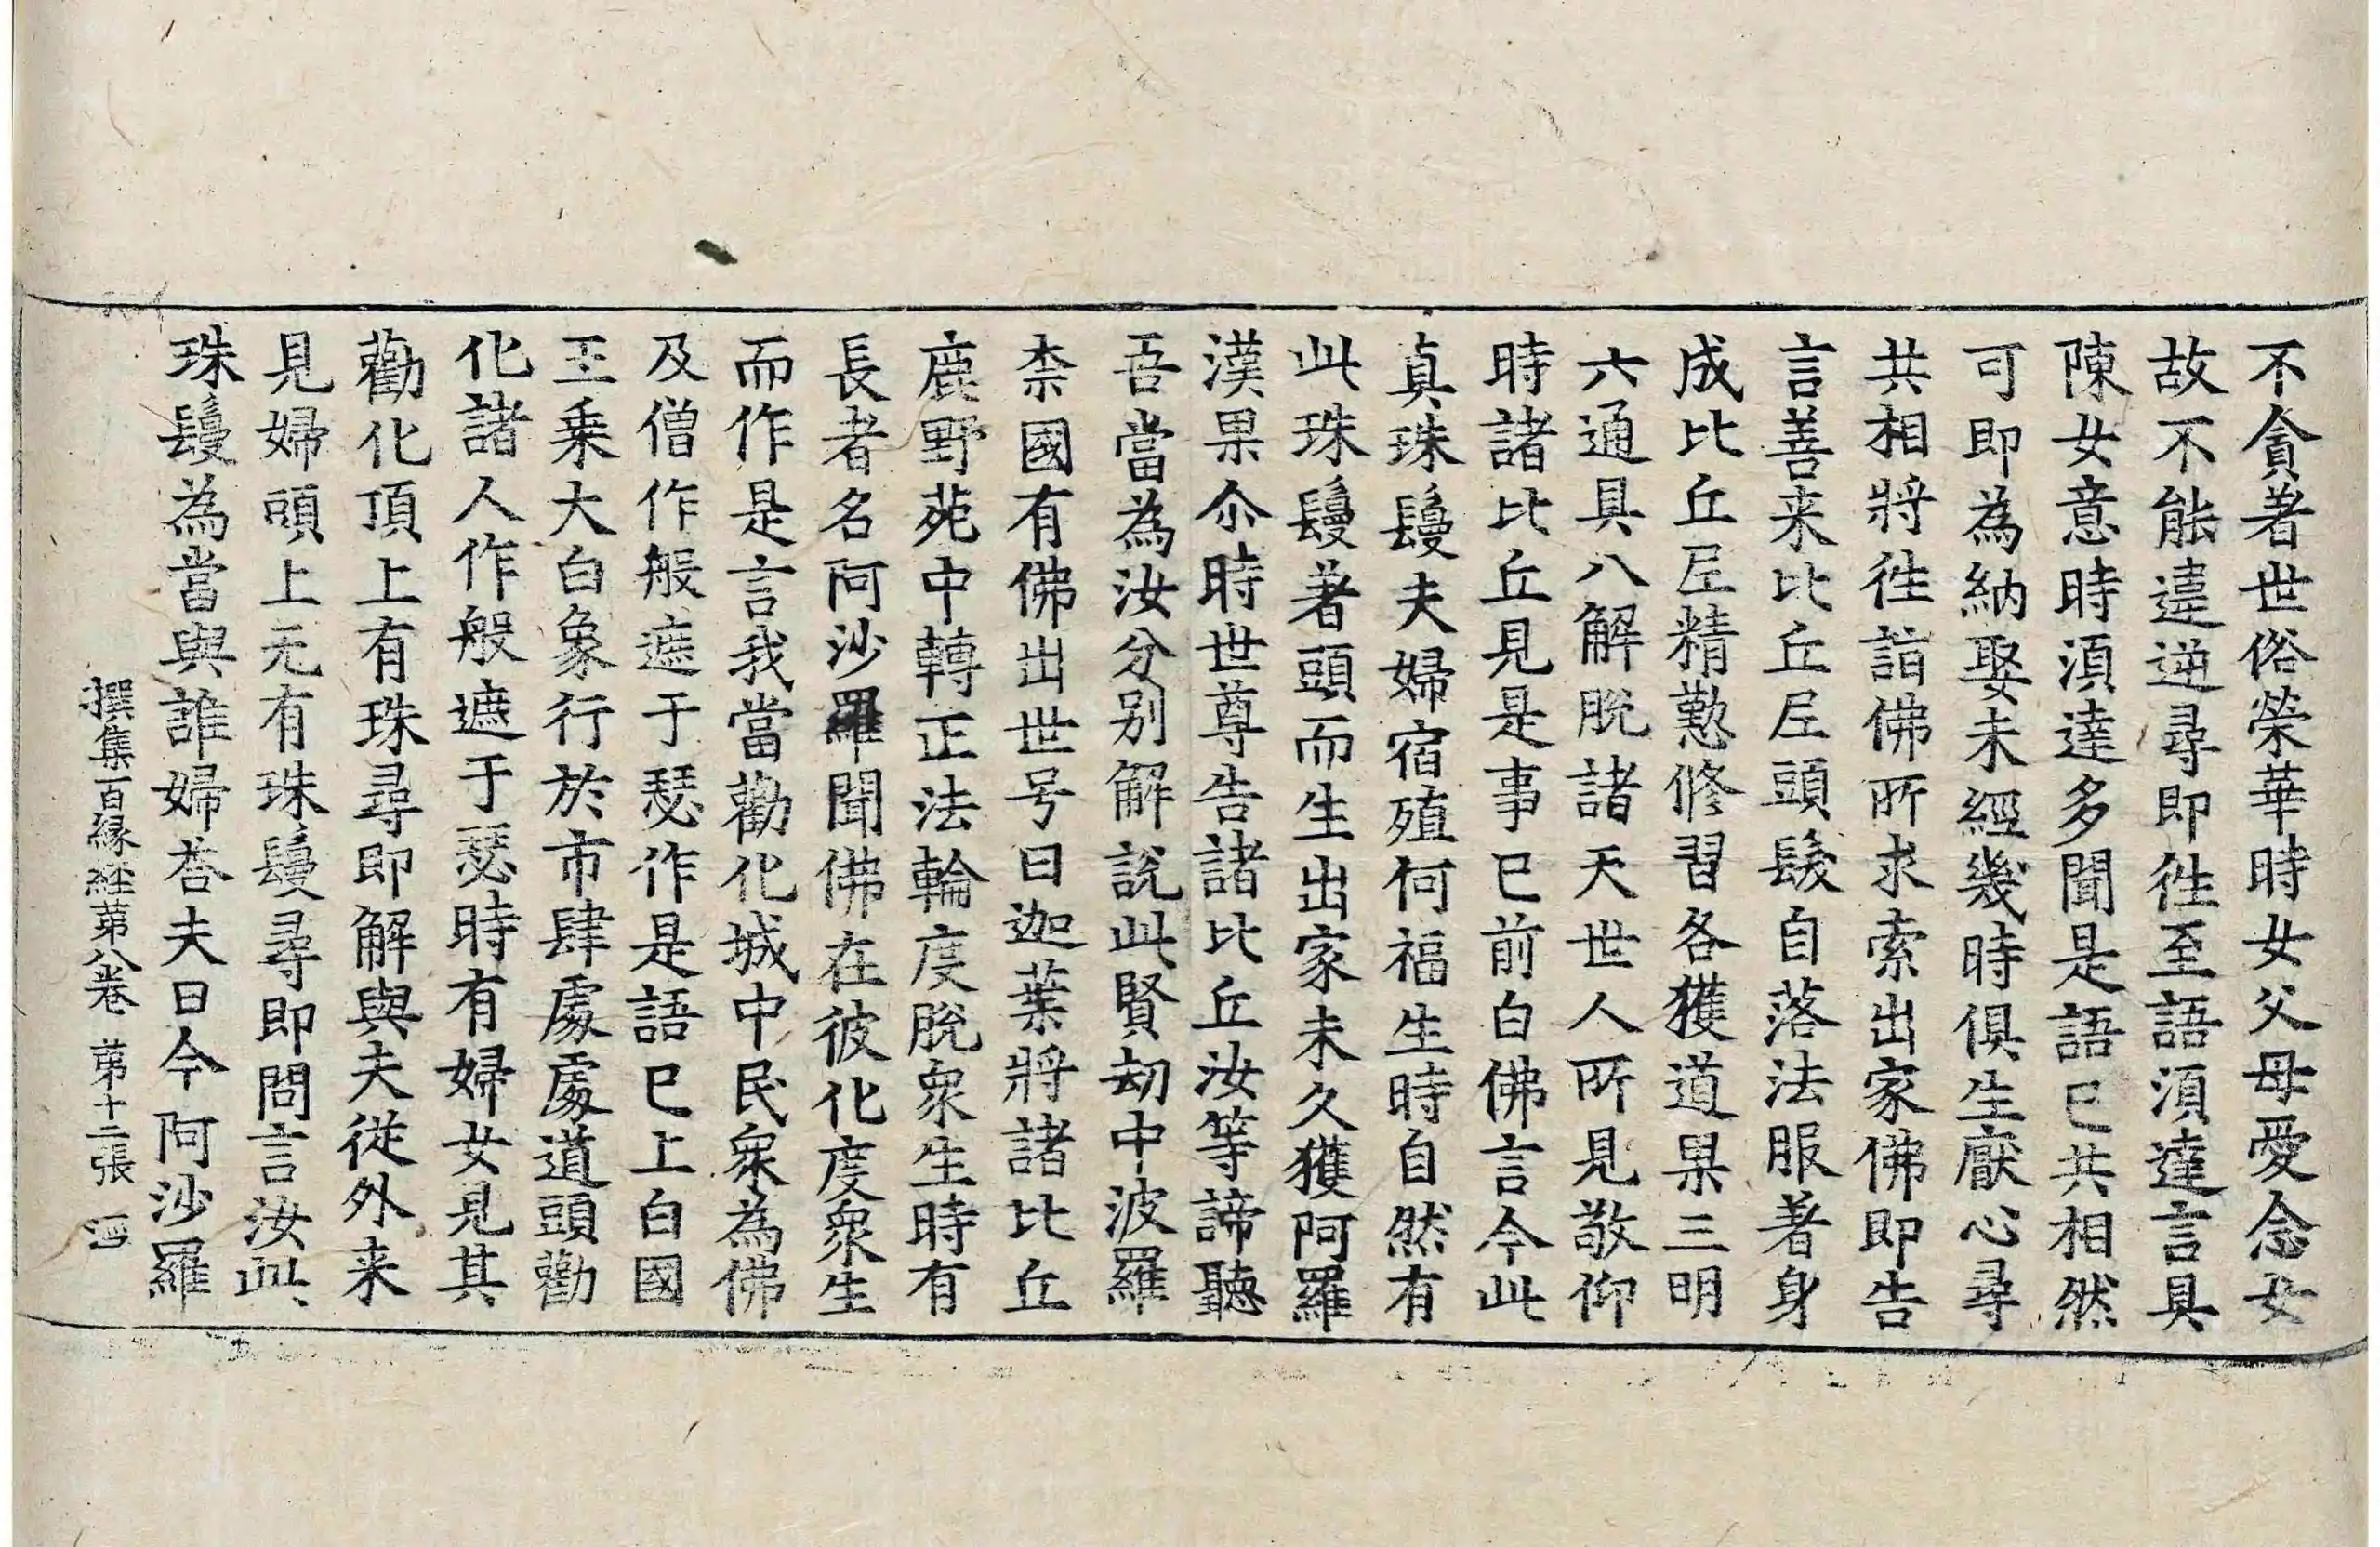 不貪著世俗榮華時女父母愛念女
故不能違逆尋即徃至語湏達言具
陳女意時湏達多聞是語已共相然
可即為納娶未經幾時俱生厭心尋
共相將徃詣佛所求索出家佛即告
言善来比丘尼頭髮自落法服著身
成比丘尼精懃修習各獲道果三明
六通具八解脫諸天世人所見敬仰
時諸比丘見是事已前白佛言今此
真珠鬘夫婦宿殖何福生時自然有
此珠鬘著頭而生出家未久獲阿羅
漢果尒時世尊告諸比丘汝等諦聽
吾當為汝分别解說此賢劫中波羅
柰國有佛出世号曰迦葉將諸比丘
鹿野苑中轉正法輪度脫衆生時有
長者名阿沙羅聞佛在彼化度衆生
而作是言我當勸化城中民衆為佛
及僧作般遮于瑟作是語已上白國
王乗大白象行於市肆處處道頭勸
化諸人作般遮于瑟時有婦女見其
勸化頂上有珠尋即解與夫從外来
見婦頭上无有珠鬘尋即問言汝此
珠鬘為當與誰婦荅夫曰今阿沙羅
撰集百緣經第八卷 第十二張